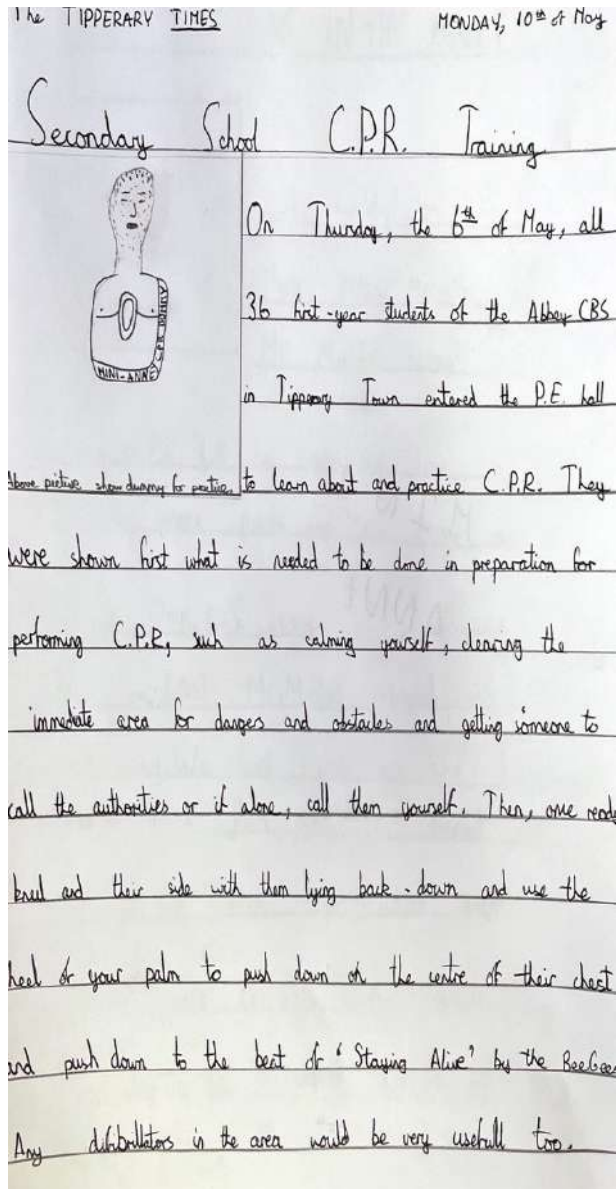 The TIPPERARY TIMES
MONDAY, 10th of May
Secondary School C.P.R. Training
MINI-ANNE CPR DUMMY
Above picture show dummy for practice.
On Thursday, the 6th of May, all
36 first-year students of the Abbey CBS
in Tipperary Town entered the P.E. hall
to learn about and practice C.P.R. They
were shown first what is needed to be done in preparation for
performing C.P.R, such as calming yourself, clearing the
immediate area for dangers and obstacles and getting someone to
call the authorities or if alone, call them yourself. Then, once ready
kneel and their side with them lying back-down and use the
heel of your palm to push down on the centre of their chest
and push down to the beat of 'Staying Alive' by the BeeGees
Any difibrillators in the area would be very usefull too.